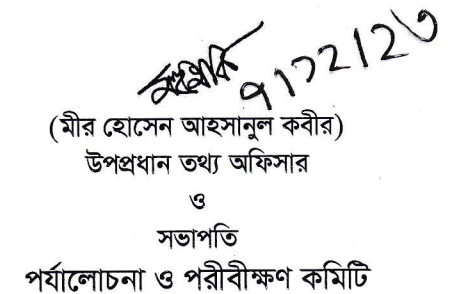 ৭।১২।২৩
(মীর হোসেন আহসানুল কবীর)
উপপ্রধান তথ্য অফিসার
ও
সভাপতি
পর্যালোচনা ও পরীবীক্ষণ কমিটি